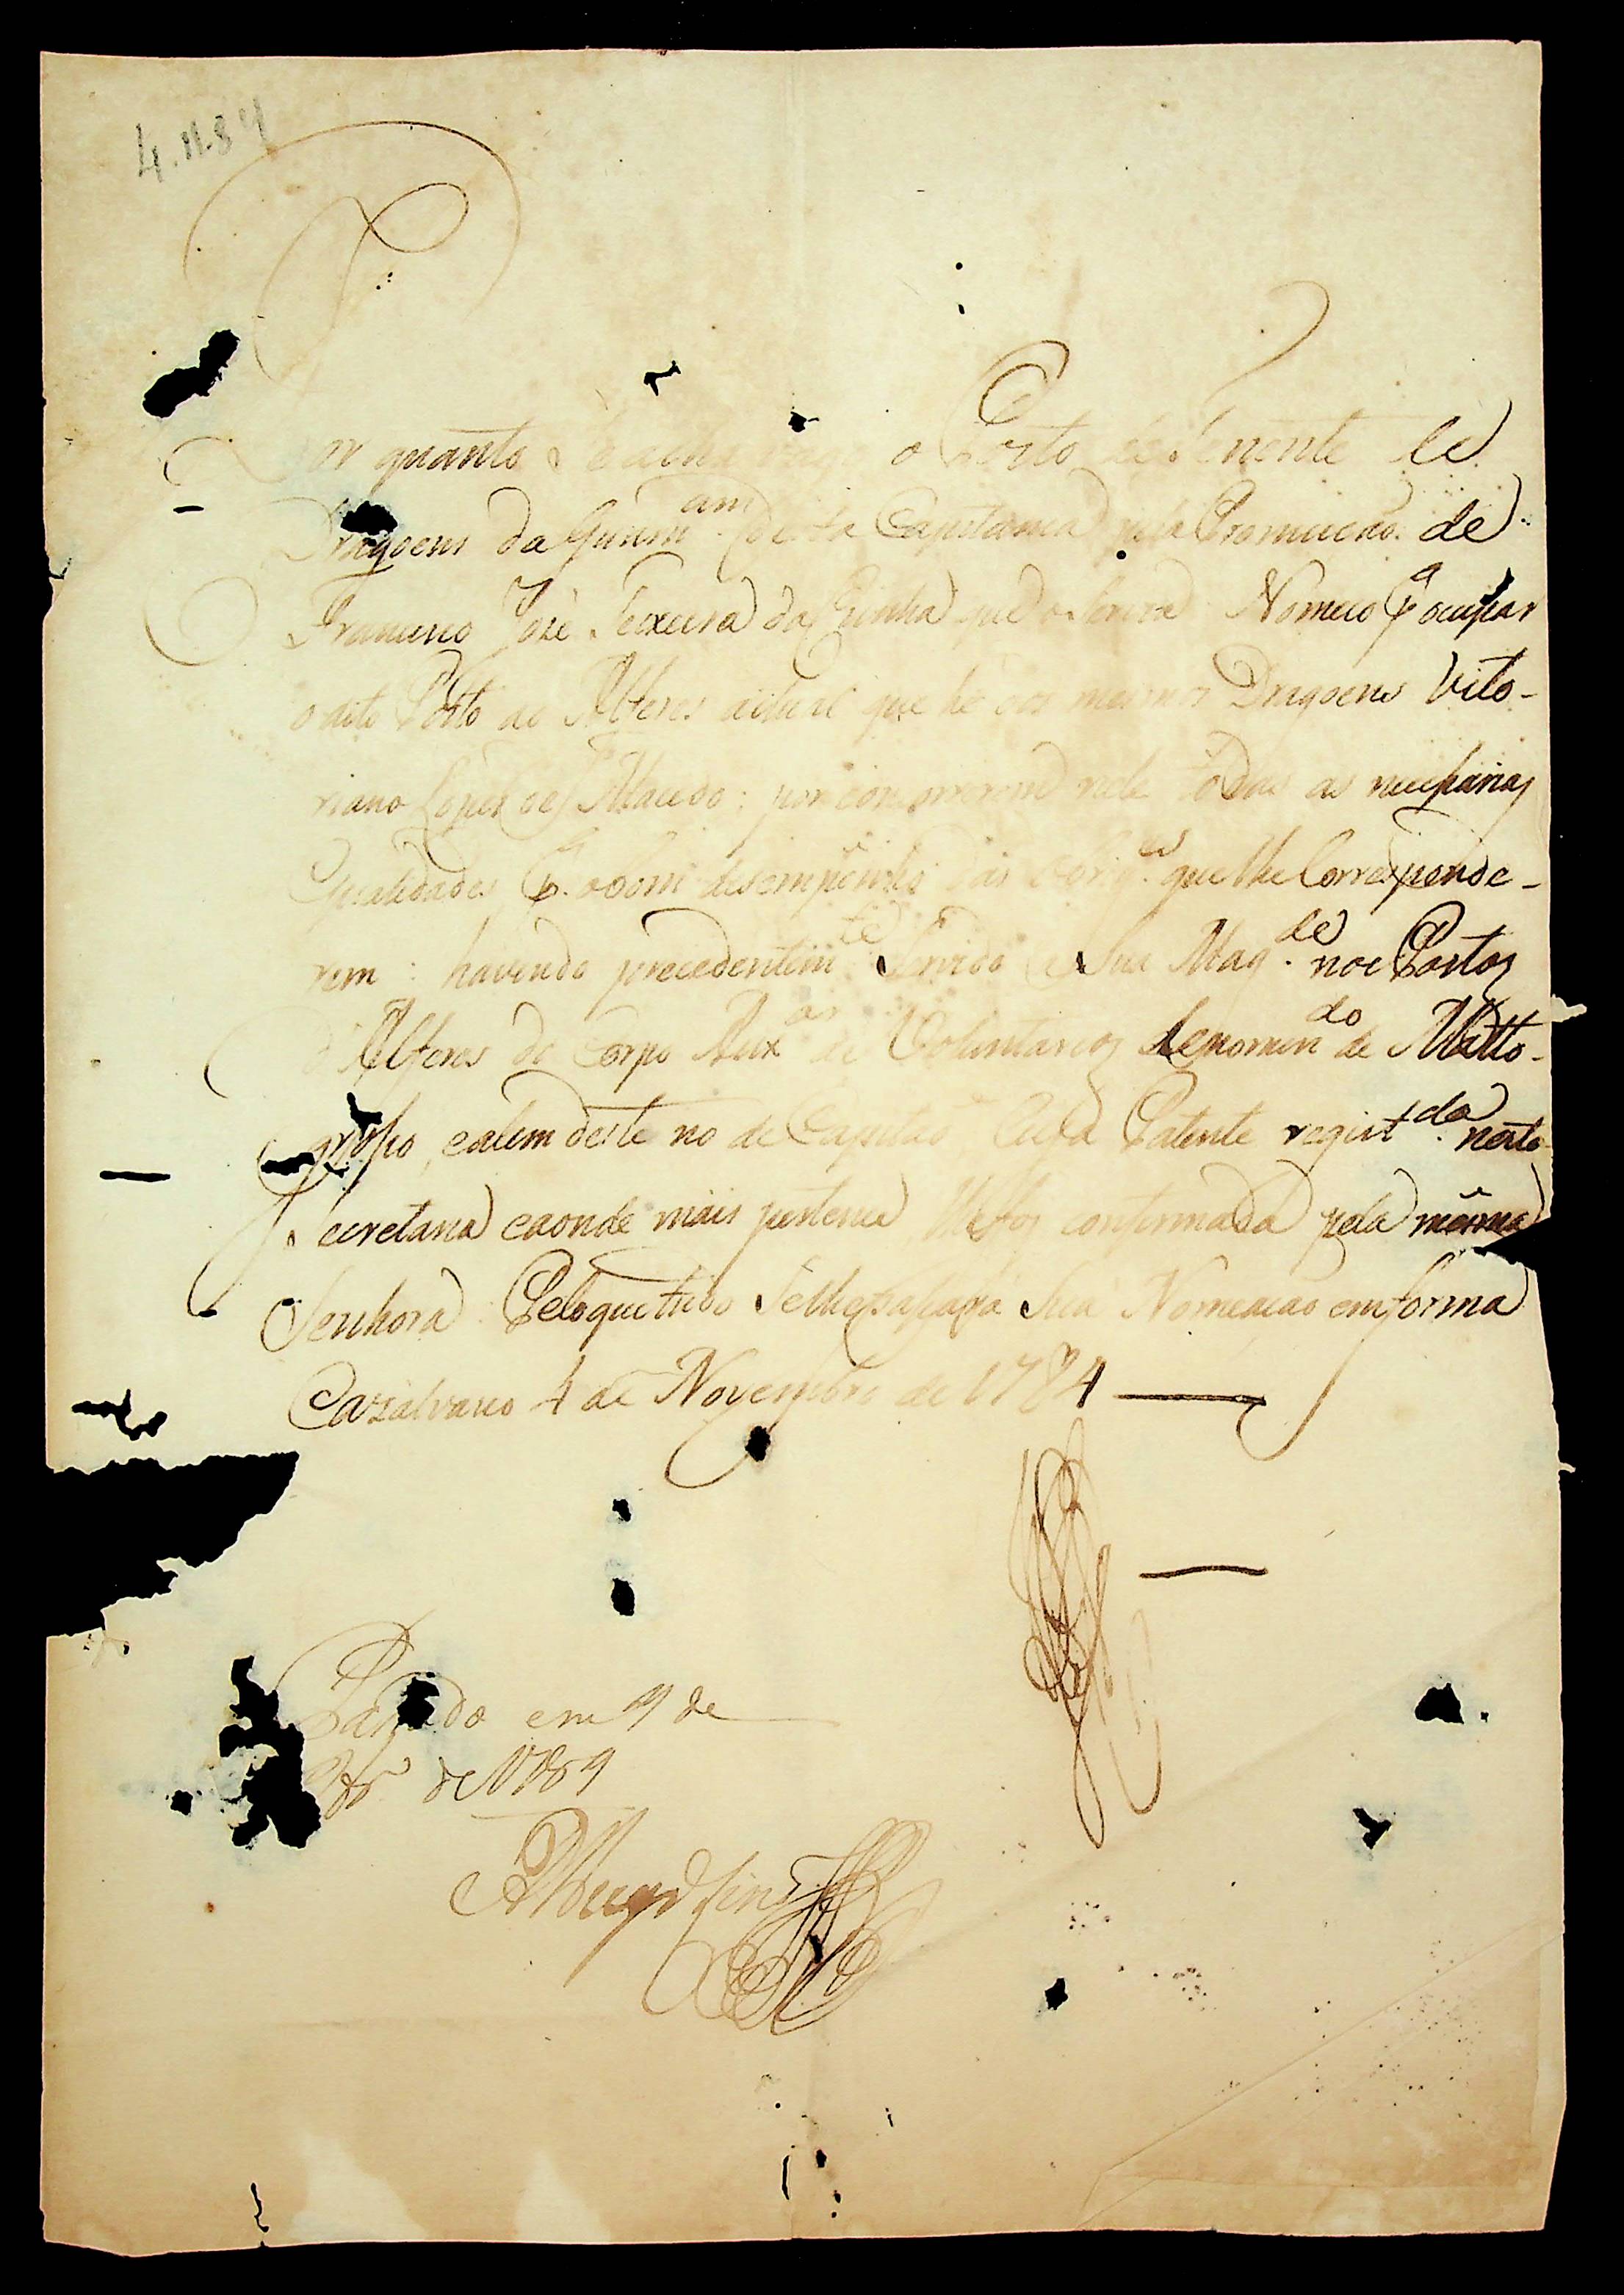 4.11.84
Por quanto Se acha vago o Posto de Tenente de
Dragoens da Guarn.am desta Capitania pela Promução de
Francisco José Teixeira da Cunha que o servia Nomeio p.a ocupar
o dito Posto ao Alferes actual que hé dos mesmos Dragoens Vito-
riano Lopes de Macedo: por concorrerem nele todas as necessarias
Qualidades p.a o bom desempenho das obrig.es que lhe Corresponde-
rem: havendo precedentem.te Servido a Sua Mag.de nos Postos
d'Alferes do Corpo Aux.ar de Voluntarios denomin.do de Matto-
grosso, e alem deste no de Capitão Cuja Patente regist.da nesta
Secretaria e aonde mais pertence lhe foi confirmada pela mesma
Senhora: Pelo que tudo Se lhe passará Sua Nomeação em forma
Cazalvasco 4 de Novembro de 1784
Passado em 9 de
de 1784